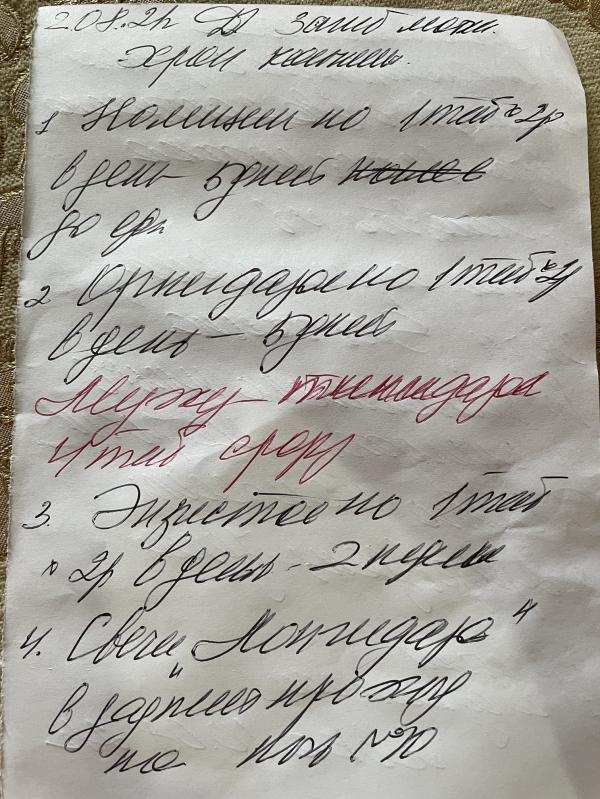 2.08.24 Ds Загиб матки.
хрон
1 Нолицин по 1 таб х 2р
в день 5 дней после
до еды
2 Орнидазол по 1 таб х 2р
в день – 5 дней
Мужу – тинидазол
4 таб сразу
3. Эпристоо по 1 таб
х 2р в день – 2 недели
4. Свечи „Лонгидаза"
в задний проход
на ночь №10